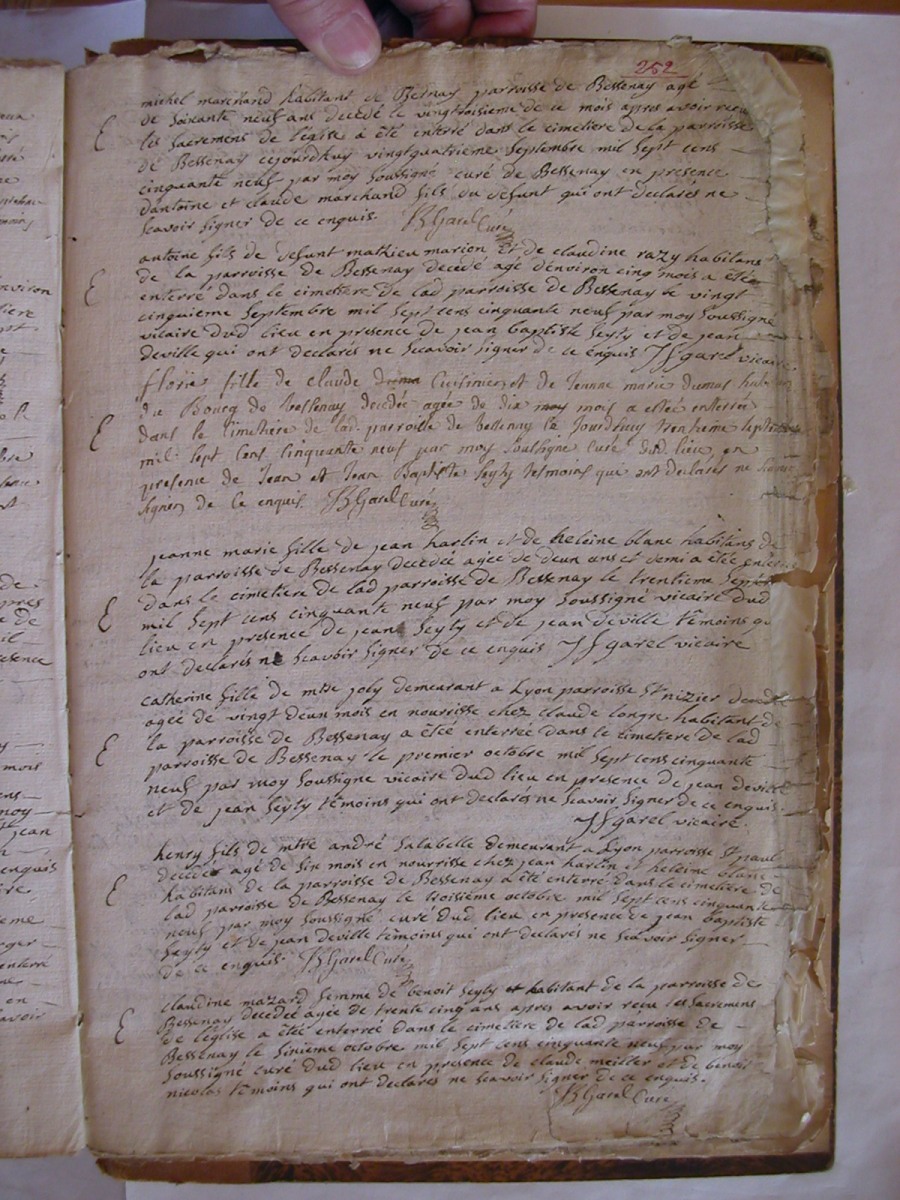 252
michel marchand habitant de Bernay parroisse de Bessenay agé
de soixante neuf ans decedé le vingtroisieme de ce mois apres avoir recu
les sacremens de l'eglise a été enterré dans le cimetiere de la parroisse
de Bessenay cejourdhuy vingtquatrieme septembre mil sept cens
cinquante neuf par moy soussigné curé de Bessenay en presence
dantoine et claude marchand fils du defunt qui ont declarés ne
scavoir signer de ce enquis. Garel Curé
antoine fils de defunt mathieu marion et de claudine razy habitans
de la parroisse de Bessenay decedé agé denviron cinq mois a étée
enterré dans le cimetiere de lad parroisse de Bessenay le vingt
cinquieme septembre mil sept cens cinquante neuf par moy soussigné
vicaire dud lieu en presence de jean baptiste seyty et de jean
deville qui ont declarés ne scavoir signer de ce enquis JJ garel vicaire
florie fille de claude Cuisinier et de Jeanne marie dumas
du Bourg de Bessenay decedée agée de dix moy mois a estée enterrée
dans le Cimetiere de lad. parroisse de Bessenay ce Jourdhuy trentieme septembre
mil sept Cens Cinquante neuf par moy soussigne Curé dud. lieu en
presence de Jean et Jean Baptiste seyty tesmoins que ont declares ne
signer de Ce enquis. Garel Curé
jeanne marie fille de jean harlin et de heleine blanc habitans de
la parroisse de Bessenay decedée agée de deux ans et demi a étée enterrée
dans le cimetiere de lad parroisse de Bessenay le trentieme
mil sept cens cinquante neuf par moy soussigné vicaire dud
lieu en presence de jean seyty et de jean deville temoins qui
ont declarés ne scavoir signer de ce enquis JJ garel vicaire
catherine fille de mtre joly demeurant a Lyon parroisse St nizier
agée de vingt deux mois en nourrisse chez claude longre habitant de
la parroisse de Bessenay a étée enterrée dans le cimetiere de lad
parroisse de Bessenay le premier octobre mil sept cens cinquante
neuf par moy soussigne vicaire dud lieu en presence de jean deville
et de jean seyty temoins qui ont declarés ne scavoir signer de ce enquis.
JJ garel vicaire.
henry fils de mtre andré salabelle demeurant a Lyon parroisse St paul
decédé agé de six mois en nourrisse chez jean harlin et heleine blanc
habitans de la parroisse de Bessenay a été enterré dans le cimetiere de
lad parroisse de Bessenay le troisieme octobre mil sept cens cinquante
neuf par moy soussigné curé dud lieu en presence de jean baptiste
seyty et de jean deville temoins qui ont declarés ne scavoir signer
de ce enquis. Garel Curé
claudine mazard femme de benoit seyty habitant de la parroisse de
Bessenay decedée agée de trente cinq ans apres avoir recu les sacremens
de l'eglise a étée enterrée dans le cimetiere de lad parroisse de
Bessenay le sixieme octobre mil sept cens cinquante neuf par moy
soussigné curé dud lieu en presence de claude meiller et de benoit
nicolas temoins qui ont declarés ne scavoir signer de ce enquis.
Garel Curé